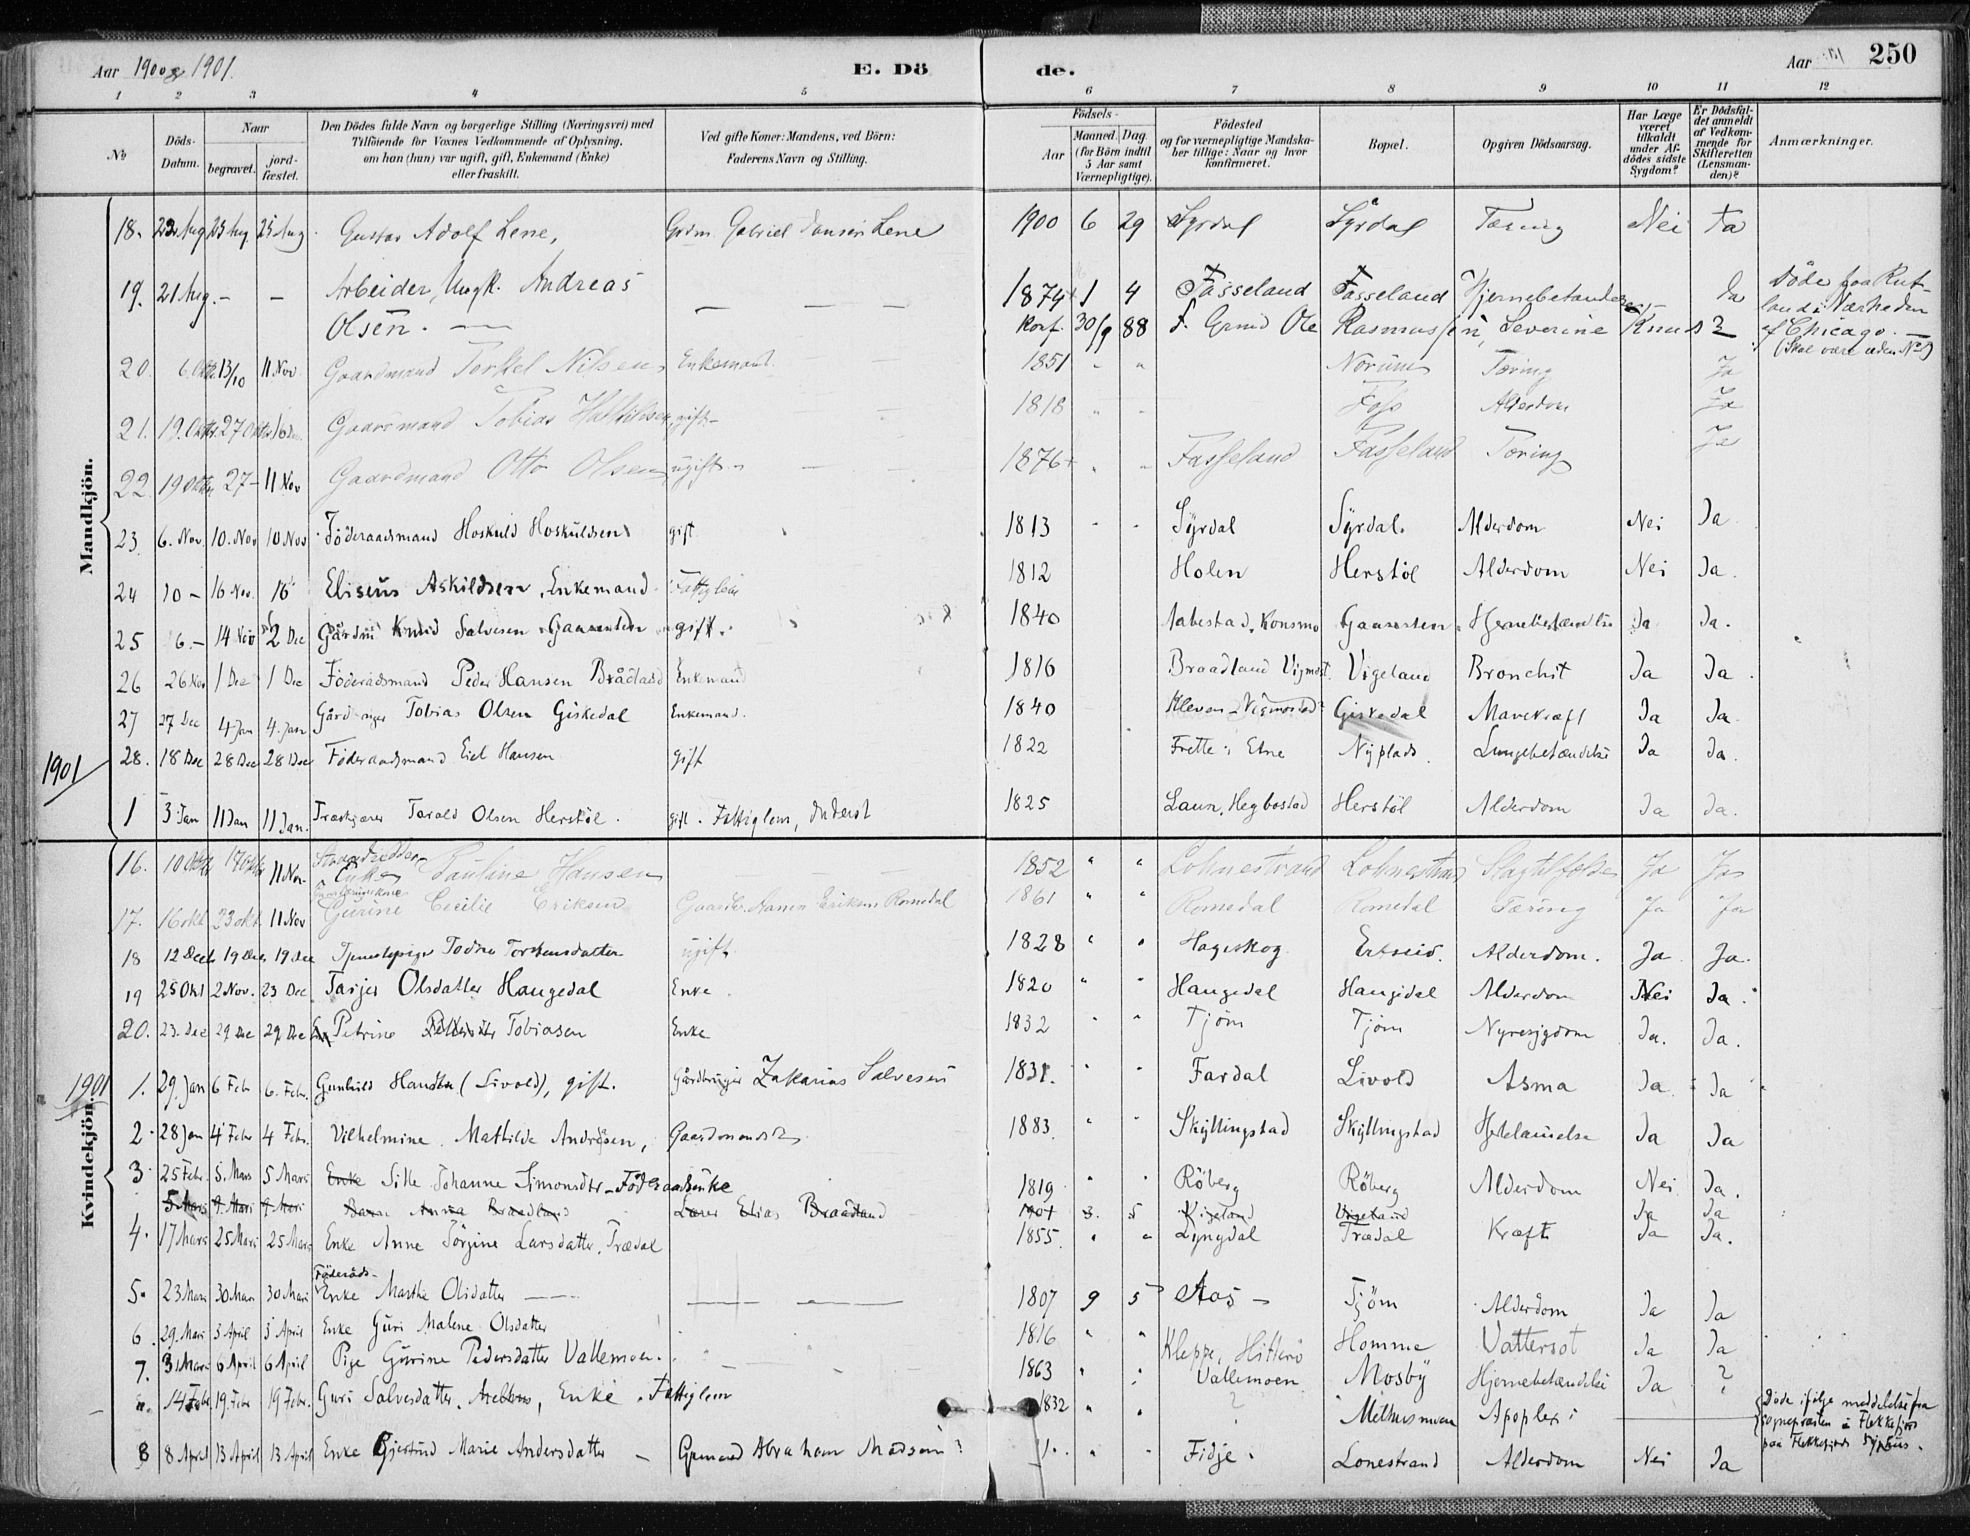 Aar 1900 og 1901.
E. Dö
de.
Aar
250
1 2 3 4 5 6 7 8 9 10 11 12
No
Döds-Datum.
Naar
begravet.
jord-fæstet.
Den Dödes fulde Navn og borgerlige Stilling (Næringsvei) med Tilföiende for Voxnes Vedkommende af Oplysning, om han (hun) var ugift, gift, Enkemand (Enke) eller fraskilt.
Ved gifte Koner: Mandens, ved Börn: Faderens Navn og Stilling.
Födsels-
Aar
Maaned. Dag. (for Börn indtil 5 Aar samt Værnepligtige).
Födested og for værnepligtige Mandskaber tillige: Naar og hvor konfirmeret.
Bopæl.
Opgiven Dödsaarsag.
Har Læge været tilkaldt under Afdödes sidste Sygdom?
Er Dödsfaldet anmeldt af Vedkommende for Skifteretten (Lensmanden)?
Anmærkninger.
Mandkjön.
18. 22 Aug 25 Aug 25 Aug Gustav Adolf Lene, Grdm. Gabriel Lene 1900 6 29 Syrdal Syrdal Tæring Nei Ja
19. 21 Aug. - - Arbeider, Ungk. Andreas 1874 1 4 Fasseland Fasseland Hjernebetændelse Ja Döde paa
Olsen. Konf. 30/9 88 Ole Rasmussen, Severine Knuds af Chicago.
20. 6. Okt 13/10 11 Nov Gaardmand Torkel Nilsen Enkemand. 1851 " " Norum Tæring Ja
21. 19. Okt. 27 Okt. Gaardmand Tobias gift 1818 " " Foss Alderdom Ja
22. 19 Okt 27 - 11 Nov Gaardmand Otto Olsen ugift 1876 " " Fasseland Fasseland Tæring Ja
23. 6. Nov. 10. Nov 10 Nov Föderaadsmand Hoskuld Hoskuldsen gift 1813 " " Syrdal Syrdal. Alderdom Nei Ja
24 10 - 16 Nov. 16 Eliseus Askildsen, Enkemand Fattiglem 1812 Holen Herstöl Alderdom Nei Ja.
25 6. - 14 Nov 2 Dec Gårdm. Knud Salvesen gift. 1840 Aabestad, Konsmo Ja Ja.
26 26 Nov 1 Dec 1 Dec Föderådsmand Peder Hansen Brådland Enkemand 1816 Braadland Vigmost. Vigeland Bronchit Ja Ja.
27 27 Dec 4 Jan 4. Jan Gård Tobias Olsen Giskedal Enkemand. 1840 Kleven - Vigmostad Giskedal Mavekræft Ja Ja.
28. 18 Dec 28 Dec 28 Dec Föderaadsmand Eiel Hansen gift 1822 Frette i Etne Nyplads Lungebetændelse Ja Ja.
1901
1 3 Jan 11 Jan 11 Jan. Tarald Olsen Herstöl. gift. Fattiglem, Inderst 1825 Laun, Hegbostad Herstöl Alderdom Ja Ja.
Kvindekjön.
16. 10 Okt 17 Okt 11 Nov Enke Pauline Hansen 1852 " " Lohnestrand Lohnestrand Slagtilfælde Ja Ja
17. 16 okt 23 okt. 11 Nov Gurine Cecilie Eriksen Hans Eriksen Romedal 1861 " " Romedal Romedal Tæring Ja Ja
18 12 Dec 19 Dec 19 Dec Tjenestepige Todne Torkensdatter ugift 1828 " " Hageskog Ertseid. Alderdom. Ja Ja.
19 25 Okt 2 Nov. 23 Dec Tarjer Olsdatter Haugedal Enke 1820 " " Haugedal Haugedal Alderdom Nei Ja.
20. 23. Dec 29 Dec 29 Dec Petrine Tobiasen Enke 1832 " " Tjöm Tjöm Nyresygdom Ja. Ja.
1901
1. 29. Jan 6 Febr 6. Febr. Gunhild Hansdtr (Livold), gift. Gårdbruger Zakarias Salvesen 1831. Fardal Livold Asma Ja Ja
2. 28 Jan 4 Febr 4 Febr. Vilhelmine Mathilde Andreasen, 1883. " " Skyllingstad Skyllingstad Ja Ja
3. 25 Febr. 5. Mars 5 Mars Enke Sille Johanne Simonsdtr - Föderaadsenke 1819 " " Röberg Röberg Alderdom Nei Ja.
5 Mars 9. Mars 9 Mars Barn Anna Braadland Lærer Elias Braadland 1901 3. 5 Vigeland Vigeland Ja Ja
4. 17 Mars 25 Mars 25 Mars Enke Anne Jörgine Larsdatter, Trædal 1855. " " Lyngdal Trædal Kræft Ja Ja.
5. 23 Mars 30 Mars 30 Mars Föderåds-Enke Marthe Olsdatter 1807 9 5 Aas - Tjöm Alderdom Ja Ja
6. 29. Mars 3 April 3 April Enke Guri Malene Olsdatter 1816 " " Kleppe, Hitterö Homme Vattersot Ja Ja
7. 31 Mars 6 April 6 April Pige Gurine Pedersdatter Vallemoen. 1863 " Vallemoen Mosby Hjernebetændelse Ja ?
14 Febr. 19. Febr 19 Febr. Guri Salvesdatter, Enke. Fattiglem 1832 " " ? Apoplexi Döde ifölge meddelelse fra
sognepresten i Flekkefjord
paa Flekkefjords Sygehus.
8 8 April 13 April 13 April Enke Gjertrud Marie Andersdatter - Abraham Madsen " " Fidje. Lonestrand Alderdom Nei Ja